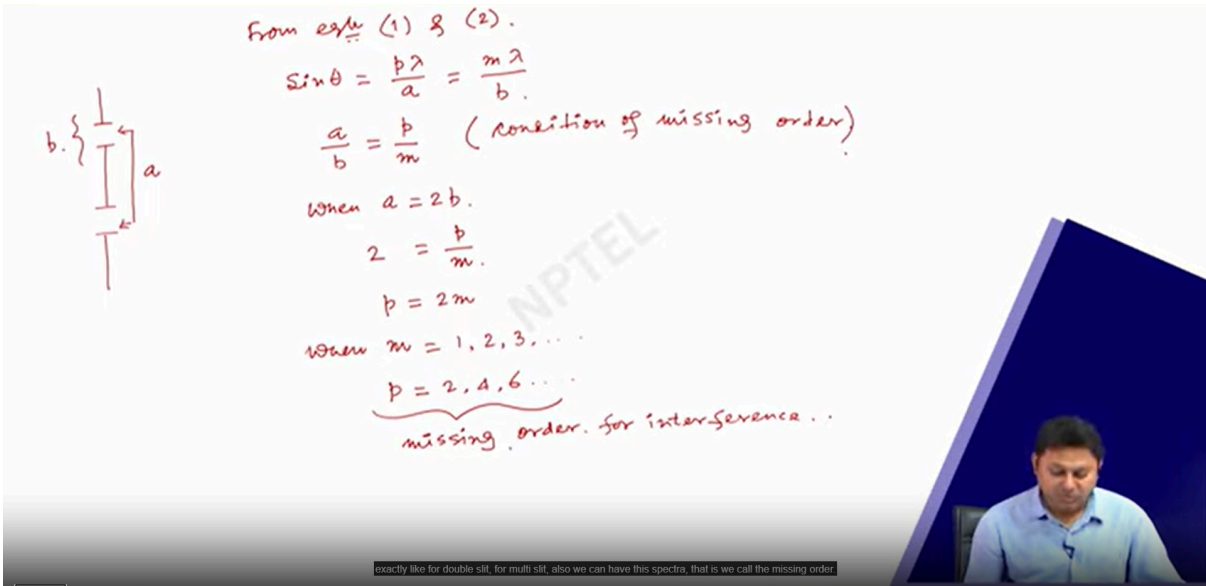 From eqn (1) & (2).
Sinθ = pλ/a = mλ/b.
a/b = p/m (condition of missing order)
b.
a
when a = 2b.
2 = p/m.
p = 2m
NPTEL
when m = 1, 2, 3, ....
p = 2, 4, 6 ....
missing order. for interference..
exactly like for double slit, for multi slit, also we can have this spectra, that is we call the missing order.